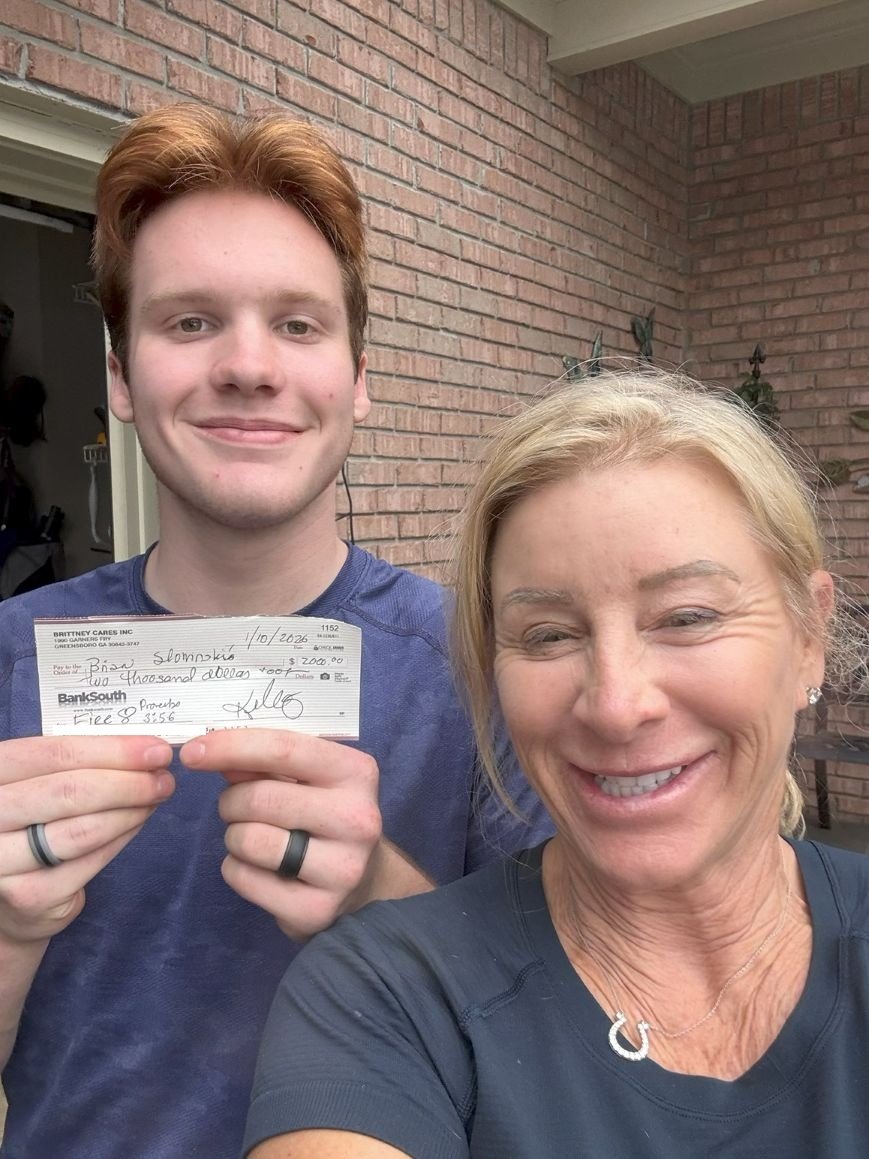 BRITTNEY CARES INC
1990 GARNERS FRY
GREENSBORO GA 30642-3747
1152
1/10/2026
Date
Pay to the
Order of
Brian
$ 2000.00
two thousand dollars
Dollars
BankSouth
Proverbs
3:56